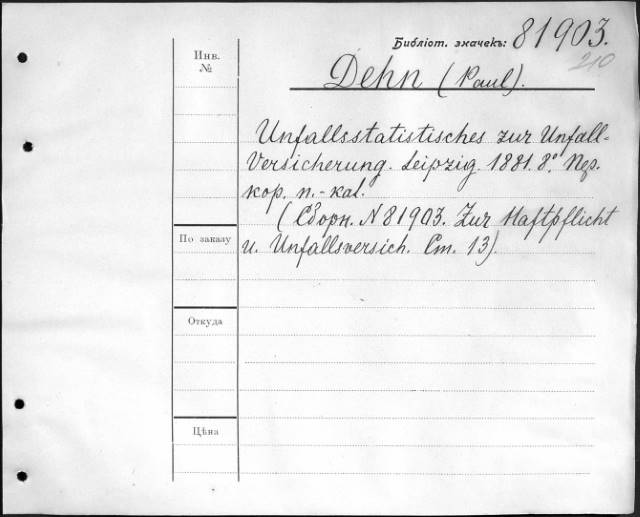 Библіот. значекъ: 81903.
210
Инв.
№
Dehn (Paul).
Unfallsstatistisches zur Unfall-
Versicherung. Leipzig. 1881. 8°. Пер.
кор. п.-кал.
(Сборн. N 81903. Zur Haftpflicht
u. Unfallsversich. Ст. 13).
По заказу
Откуда
Цѣна